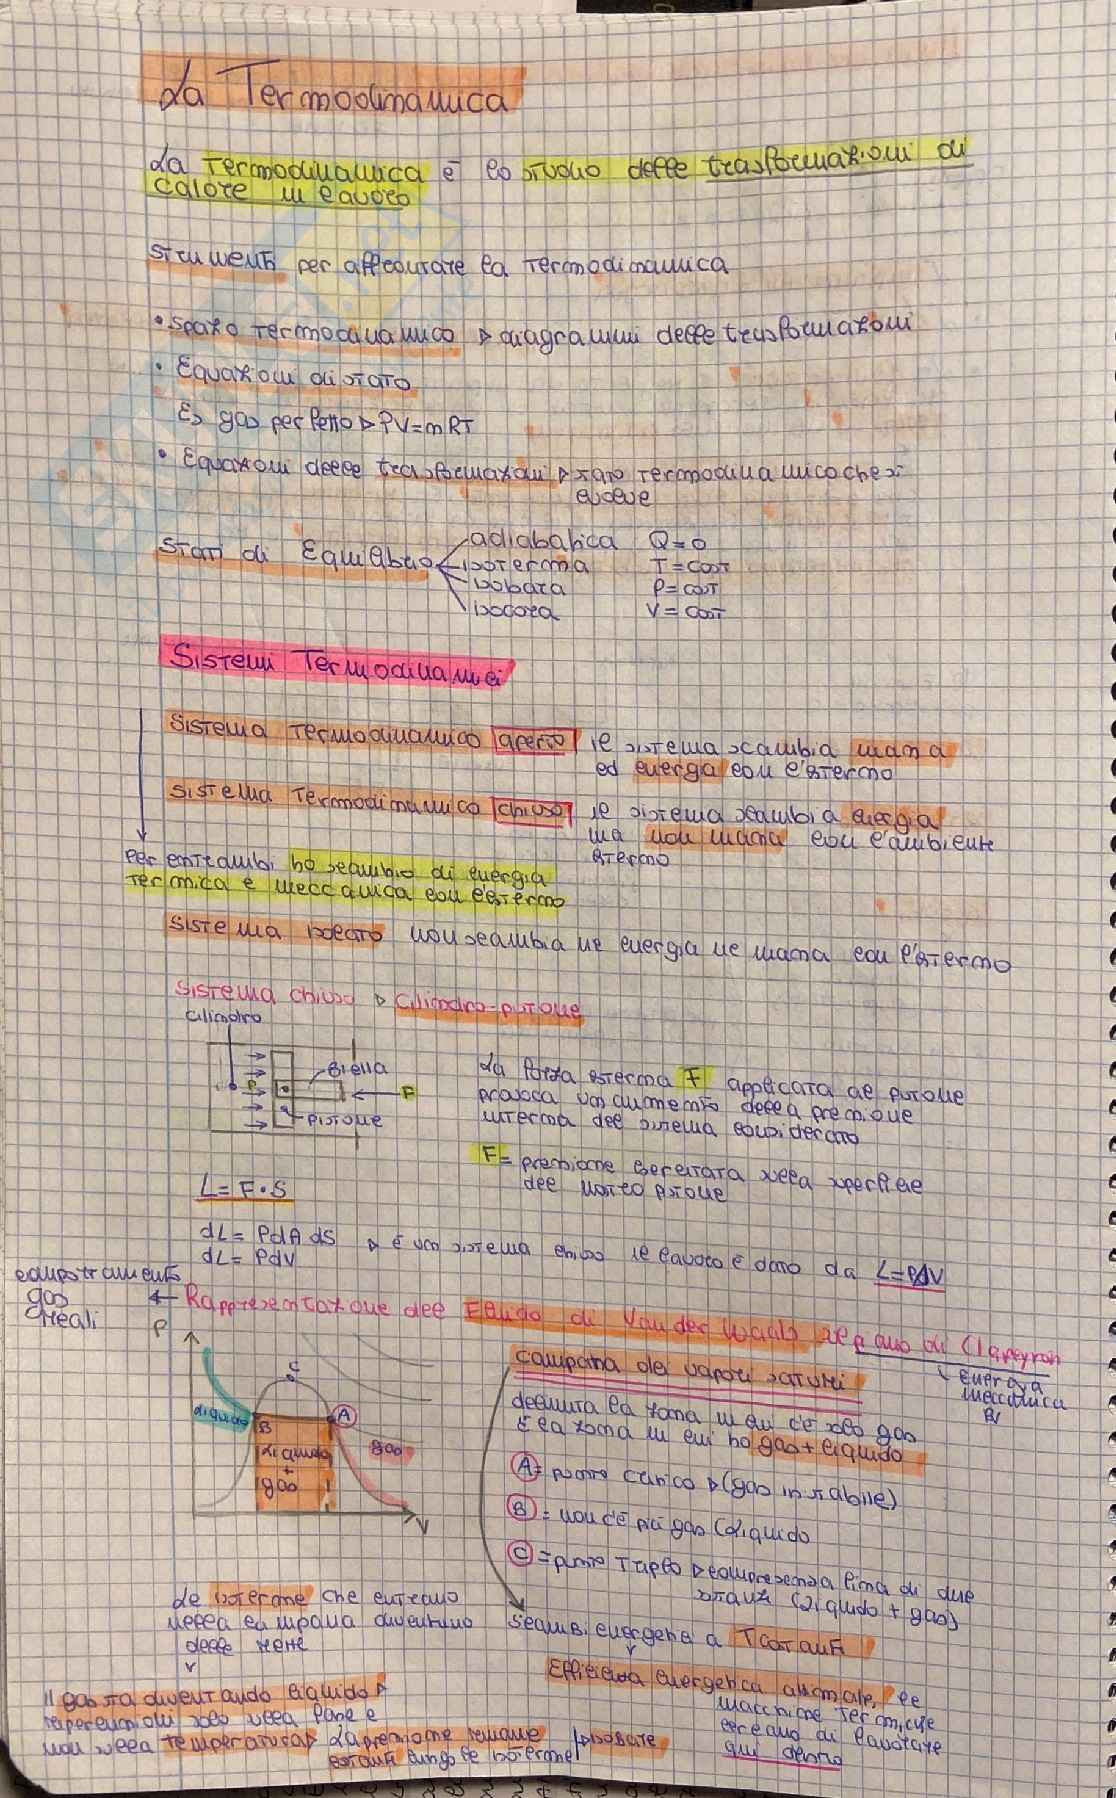 La Termodinamica
La Termodinamica è lo studio delle trasformazioni di
calore in lavoro
Strumenti per affrontare la Termodinamica
• Spazio Termodinamico ▷ diagrammi delle trasformazioni
• Equazioni di stato
Es gas perfetto ▷ PV=nRT
• Equazioni delle trasformazioni ▷ stato Termodinamico che si
evolve
Stati di Equilibrio
adiabatica Q=0
isoterma T=cost
isobara P=cost
isocora V=cost
Sistemi Termodinamici
Sistema Termodinamico aperto il sistema scambia massa
ed energia con l'esterno
Sistema Termodinamico chiuso il sistema scambia energia
ma non massa con l'ambiente
esterno
Per entrambi ho scambio di energia
termica e meccanica con l'esterno
Sistema isolato non scambia ne energia ne massa con l'esterno
Sistema chiuso ▷ Cilindro-pistone
cilindro
Biella
P
F
pistone
La forza esterna F applicata al pistone
provoca un aumento della pressione
interna del sistema considerato
F= pressione esercitata sulla superficie
del nostro pistone
L=F•S
dL= PdA dS ▷ è un sistema chiuso il lavoro è dato da L=PΔV
dL= PdV
comportamento
gas
reali
← Rappresentazione del Fluido di Van der Waals nel piano di Clapeyron
energia
meccanica
PV
P
C
liquido
B
A
liquido
+
gas
gas
V
campana dei vapori saturi
delimita la zona in cui c'è solo gas
E la zona in cui ho gas + liquido
A= punto critico ▷ (gas instabile)
B= non c'è più gas (liquido
C= punto Triplo ▷ compresenza fina di due
stati (liquido + gas)
Scambi energetici a T costante
Efficienza energetica ottimale, le
macchine termiche
cercano di lavorare
qui dentro
Le isoterme che entrano
nella campana diventano
delle rette
Il gas sta diventando liquido ▷
ripercussioni solo nella fase e
non nella temperatura ▷ La pressione rimane isobare
costante lungo le isoterme